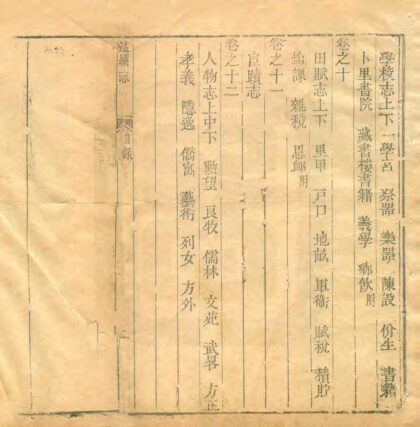 學校志上下 學宮 祭器 樂器 陳設 佾生 書籍
卜里書院 藏書樓書籍 義學 鄉飲附
卷之十
田賦志上下 里甲 戶口 地畝 軍衛 賦稅 積貯
鹽課 雜稅 恩卹附
卷之十一
宦蹟志
卷之十二
人物志上中下 勳望 良牧 儒林 文苑 武畧 方正
孝義 隱逸 僑寓 藝術 列女 方外
志 目錄